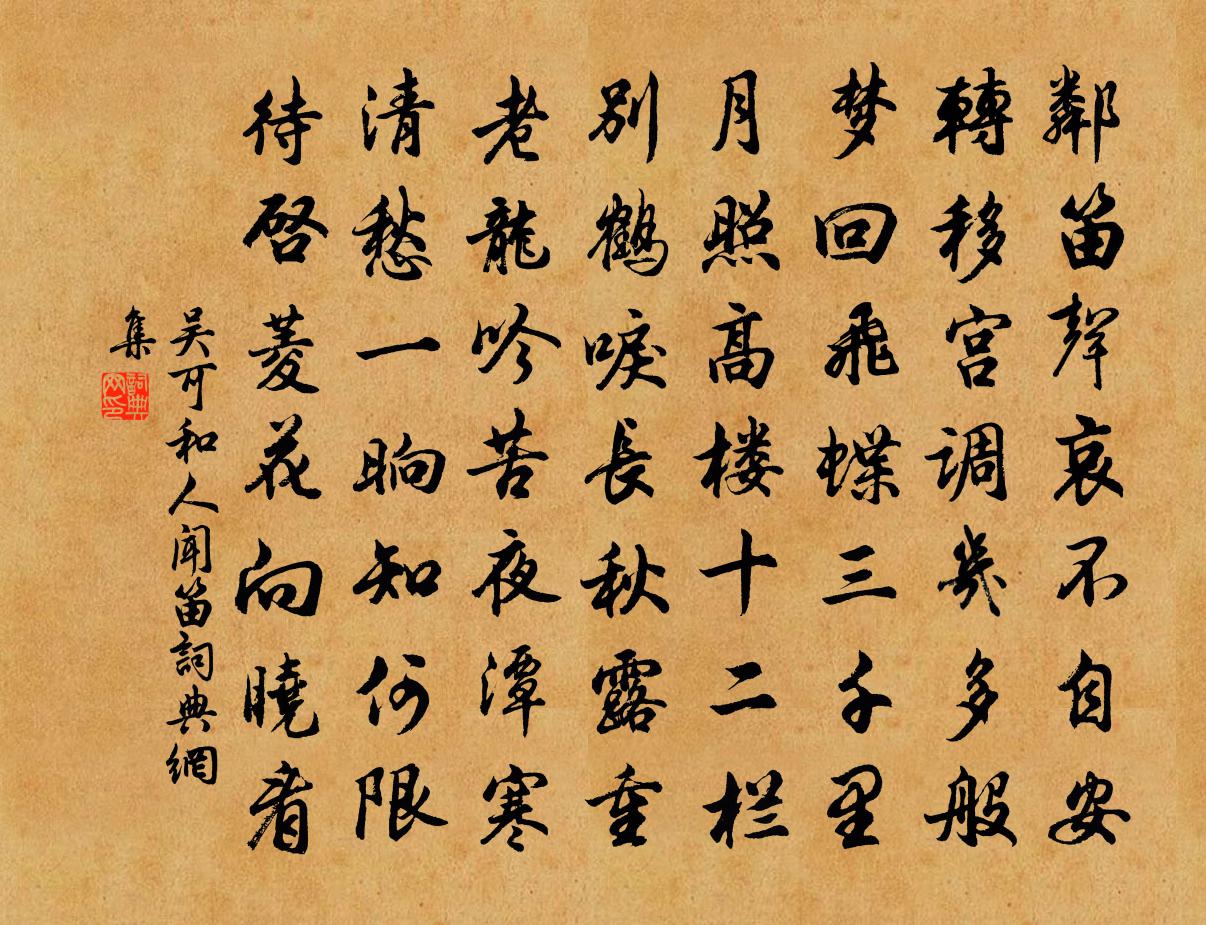 鄰笛聲哀不自安
轉移宫调幾多般
梦回飛蝶三千里
月照高楼十二栏
别鶴唳長秋露重
老龍吟苦夜潭寒
清愁一晌知何限
待啓菱花向曉看
吴可和人闻笛詞典網
集
詞典
网印